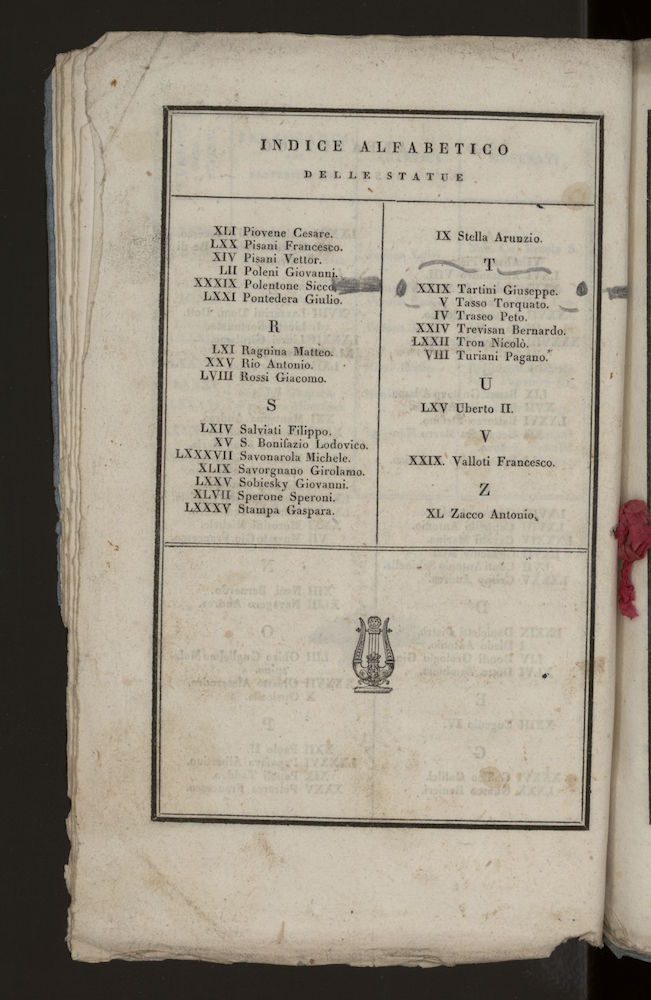 INDICE ALFABETICO
DELLE STATUE
XLI Piovene Cesare.
LXX Pisani Francesco.
XIV Pisani Vettor.
LII Poleni Giovanni.
XXXIX Polentone Sicco
LXXI Pontedera Giulio.
R
LXI Ragnina Matteo.
XXV Rio Antonio.
LVIII Rossi Giacomo.
S
LXIV Salviati Filippo.
XV S. Bonifazio Lodovico.
LXXXVII Savonarola Michele.
XLIX Savorgnano Girolamo.
LXXV Sobiesky Giovanni.
XLVII Sperone Speroni.
LXXXV Stampa Gaspara.
IX Stella Arunzio.
T
XXIX Tartini Giuseppe.
V Tasso Torquato.
IV Traseo Peto.
XXIV Trevisan Bernardo.
LXXII Tron Nicolò.
VIII Turiani Pagano.
U
LXV Uberto II.
V
XXIX. Valloti Francesco.
Z
XL Zacco Antonio.